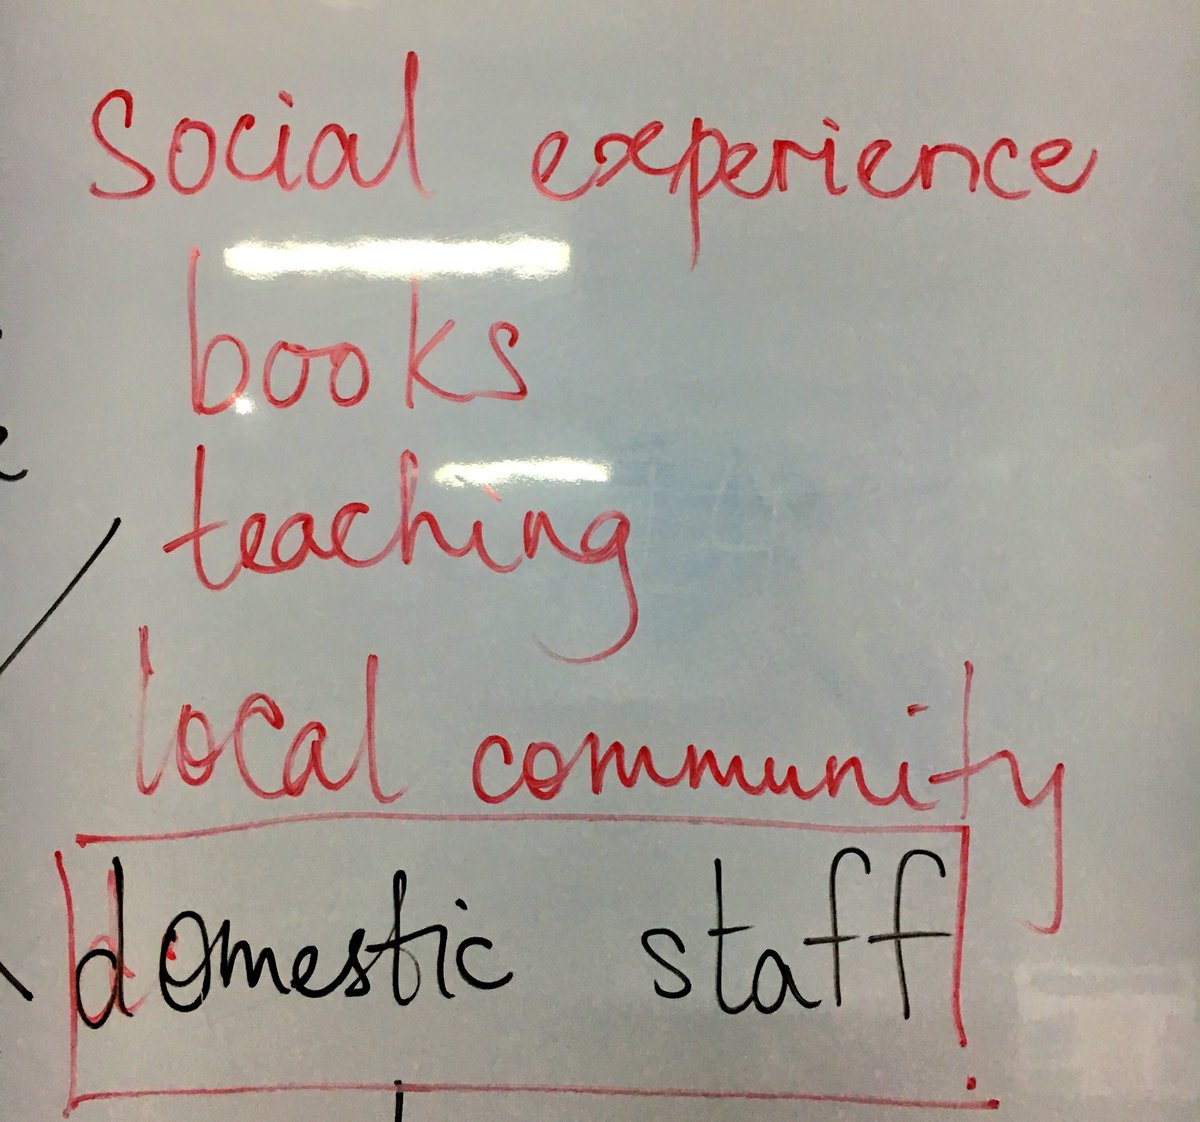 Social experience
books
teaching
local community
domestic staff